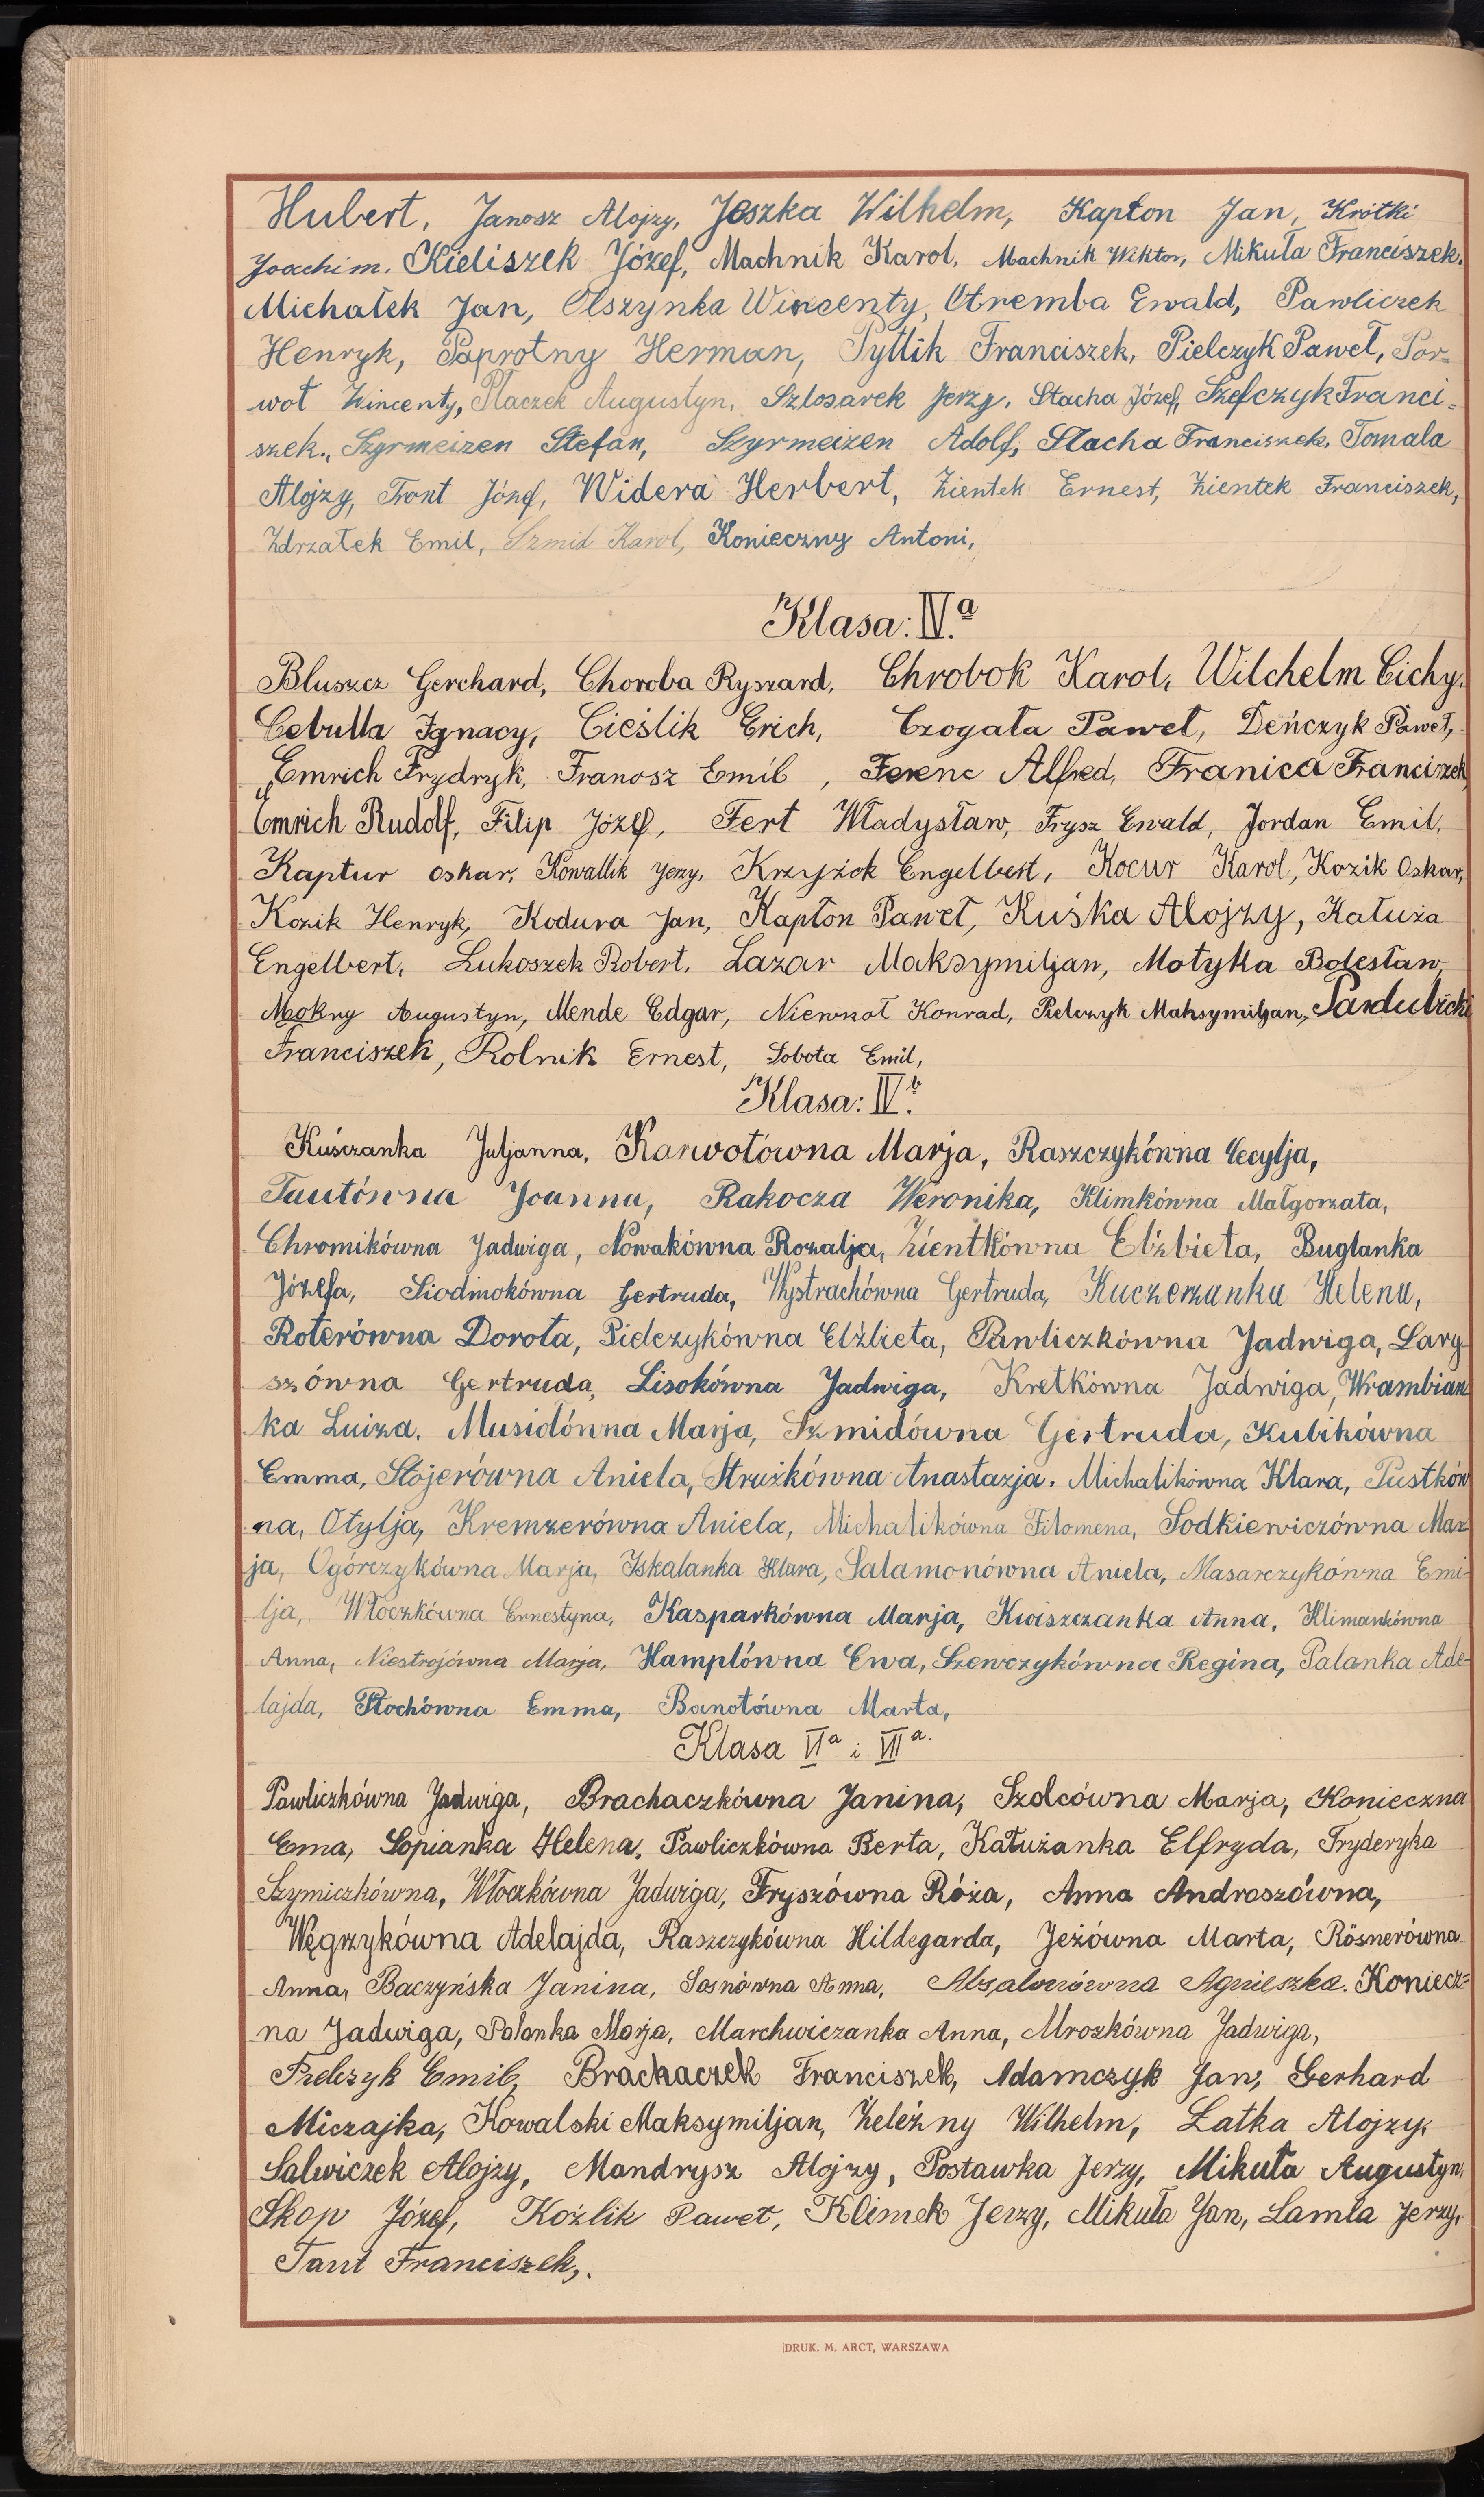 Hubert, Janosz Alojzy, Joszka Wilhelm, Kapton Jan, Krótki
Joachim. Kieliszek Józef, Machnik Karol, Machnik Wiktor, Mikuła Franciszek,
Michałek Jan, Olszynka Wincenty, Otremba Ewald, Pawliczek
Henryk, Paprotny Herman, Pytlik Franciszek, Pielczyk Paweł, Por=
woł Wincenty, Płaczek Augustyn, Szlosarek Jerzy, Stacha Józef, Szefczyk Franci=
szek., Szyrmeizen Stefan, Szyrmeizen Adolf, Stacha Franciszek, Tomala
Alojzy, Tront Józef, Widera Herbert, Zientek Ernest, Zientek Franciszek,
Zdrzałek Emil, Szmid Karol, Konieczny Antoni,
Klasa: IV.a
Bluszcz Gerchard, Choroba Ryszard, Chrobok Karol, Wilchelm Cichy,
Cebulla Ignacy, Cieślik Erich, Czogała Paweł, Deńczyk Paweł,
Emrich Frydryk, Franosz Emil, Ferenc Alfred, Franica Franciszek
Emrich Rudolf, Filip Józef, Fert Władysław, Frysz Ewald, Jordan Emil,
Kaptur Oskar, Kowallik Jerzy, Krzyżok Engelbert, Kocur Karol, Kozik Oskar,
Kozik Henryk, Kodura Jan, Kapłon Paweł, Kuśka Alojzy, Kałuża
Engelbert, Lukoszek Robert, Lazar Maksymiljan, Motyka Bolesław,
Mokry Augustyn, Mende Edgar, Niewrzoł Konrad, Pielczyk Maksymiljan, Pardubicki
Franciszek, Rolnik Ernest, Sobota Emil,
Klasa: IV.b
Kuśczanka Juljanna, Karwotówna Marja, Raszczykówna Cecylja,
Tautówna Joanna, Rakocza Weronika, Klimkówna Małgorzata,
Chromikówna Jadwiga, Nowakówna Rozalja, Zientkówna Elżbieta, Buglanka
Józefa, Siodmokówna Gertruda, Wystrachówna Gertruda, Kuczerzanka Helena,
Roterówna Dorota, Pielczykówna Elżbieta, Pawliczkówna Jadwiga, Lary-
szówna Gertruda, Lisokówna Jadwiga, Kretkówna Jadwiga, Wrambian
ka Luiza, Musiołówna Marja, Szmidówna Gertruda, Kubikówna
Emma, Stojerówna Aniela, Strużkówna Anastazja. Michalikówna Klara, Pustków
na, Otylja, Kremzerówna Aniela, Michalikówna Filomena, Sodkiewiczówna Mar
ja, Ogórczykówna Marja, Iskalanka Klara, Salamonówna Aniela, Masarczykówna Emi-
lja, Włoczkówna Ernestyna, Kasparkówna Marja, Kwiszczanka Anna, Klimankówna
Anna, Niestrojówna Marja, Hamplówna Ewa, Szewczykówna Regina, Palanka Ade-
lajda, Płochówna Emma, Banotówna Marta,
Klasa VIa i VIIa.
Pawliczkówna Jadwiga, Brachaczkówna Janina, Szolcówna Marja, Konieczna
Ema, Sopianka Helena, Pawliczkówna Berta, Kałużanka Elfryda, Fryderyka
Szymiczkówna, Włoczkówna Jadwiga, Fryszówna Róża, Anna Androszówna,
Węgrzykówna Adelajda, Raszczykówna Hildegarda, Jeżówna Marta, Rösnerówna
Anna, Baczyńska Janina, Sosnówna Anna, Absalonówna Agnieszka. Koniecz=
na Jadwiga, Palanka Marja, Marchwiczanka Anna, Mrozkówna Jadwiga,
Pielczyk Emil, Brachaczek Franciszek, Adamczyk Jan, Gerhard
Miczajka, Kowalski Maksymiljan, Żeleźny Wilhelm, Latka Alojzy,
Salwiczek Alojzy, Mandrysz Alojzy, Postawka Jerzy, Mikuła Augustyn,
Skop Józef, Koźlik Paweł, Klimek Jerzy, Mikuła Jan, Lamla Jerzy,
Taut Franciszek,.
DRUK. M. ARCT, WARSZAWA